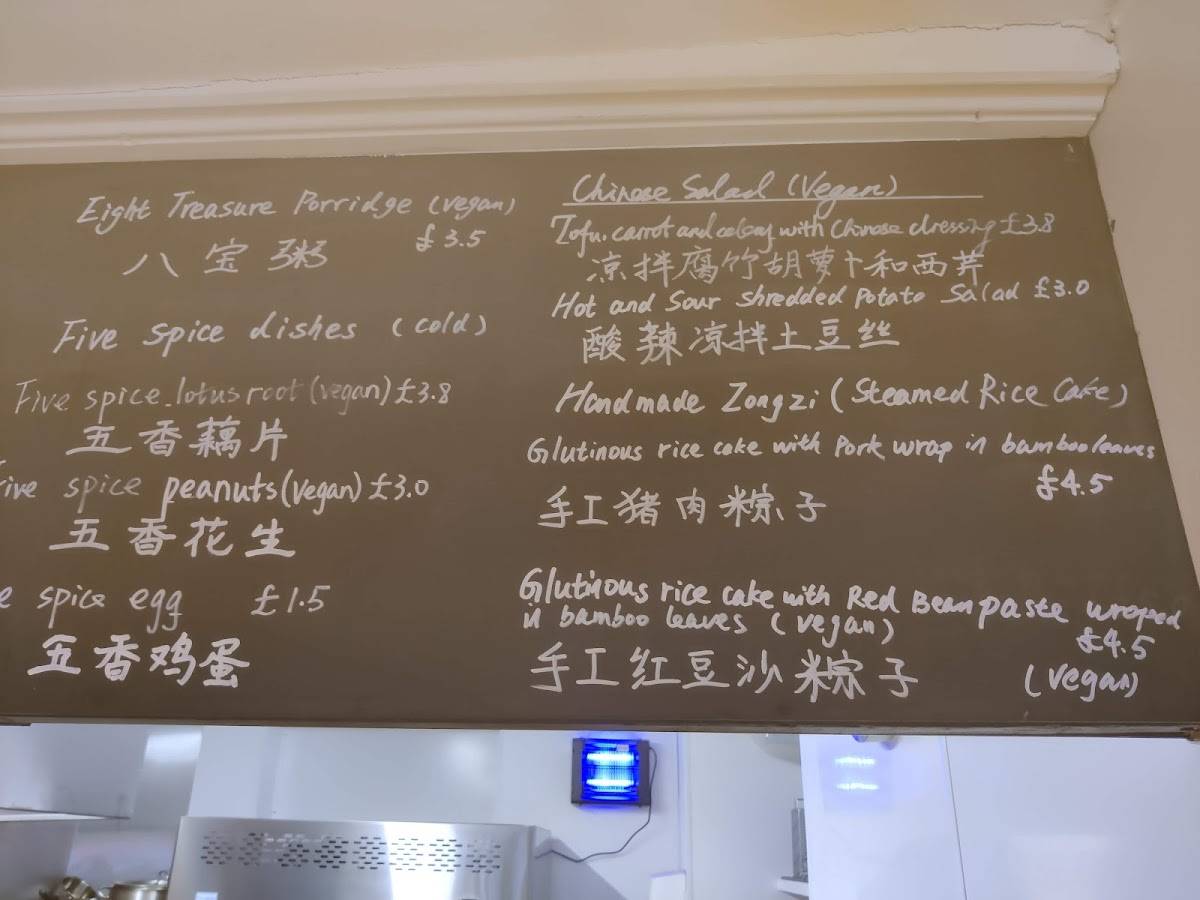 Eight Treasure Porridge (vegan)
£3.5
八宝粥
Five spice dishes (cold)
Five spice lotus root (vegan) £3.8
五香藕片
Five spice peanuts (vegan) £3.0
五香花生
spice egg £1.5
五香鸡蛋
Chinese Salad (Vegan)
Tofu, carrot and celery with Chinese dressing £3.8
凉拌腐竹胡萝卜和西芹
Hot and Sour Shredded Potato Salad £3.0
酸辣凉拌土豆丝
Handmade Zongzi (Steamed Rice Cake)
Glutinous rice cake with Pork wrap in bamboo leaves
£4.5
手工猪肉粽子
Glutinous rice cake with Red Bean paste wraped
in bamboo leaves (vegan)
£4.5
手工红豆沙粽子
(vegan)